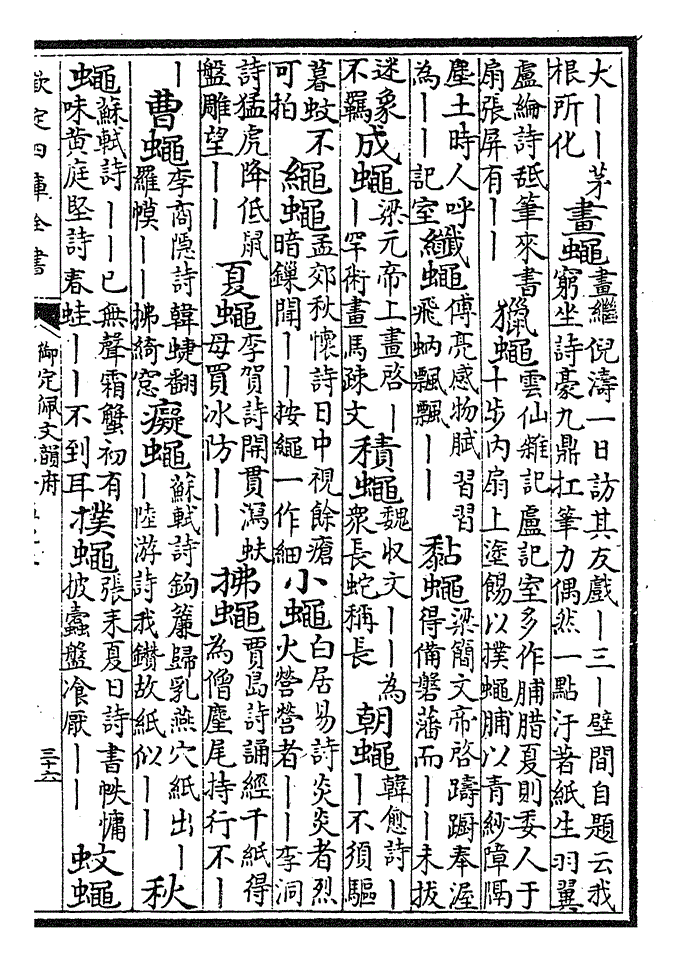 大丨丨茅根所化 畫蠅 畫繼倪濤一日訪其友戲丨三丨壁間自題云我窮坐詩豪九鼎扛筆力偶然一點汙著紙生羽翼
盧綸詩舐筆來書扇張屏有丨丨 獵蠅 雲仙雜記盧記室多作脯腊夏則委人于十步内扇上塗餳以撲蠅脯以青紗障隔
塵土時人呼為丨丨記室 纖蠅 傅亮感物賦習習飛蚋飄飄丨丨 黏蠅 梁簡文帝啓躊躕奉渥得備磐藩而丨丨未拔
迷象不羈 成蠅 梁元帝上畫啓丨丨罕術畫馬疎文 積蠅 魏收文丨丨為衆長蛇稱長 朝蠅 韓愈詩丨丨不須驅
暮蚊不可拍 繩蠅 孟郊秋懷詩日中視餘瘡暗鏁聞丨丨按繩一作細 小蠅 白居易詩炎炎者烈火營營者丨丨李洞
詩猛虎降低鼠盤雕望丨丨 夏蠅 李賀詩開貫瀉蚨母買冰防丨丨 拂蠅 賈島詩誦經千紙得為僧麈尾持行不丨
丨 曹蠅 李商隱詩韓蝶翻羅幙丨丨拂綺窓 癡蠅 蘇軾詩鉤簾歸乳燕穴紙出丨丨陸游詩我鑽故紙似丨丨 秋
蠅 蘇軾詩丨丨已無聲霜蟹初有味黄庭堅詩春蛙丨丨不到耳 撲蠅 張耒夏日詩書帙慵披蠹盤飡厭丨丨 蚊蠅
欽定四庫全書
御定佩文韻府
三十六